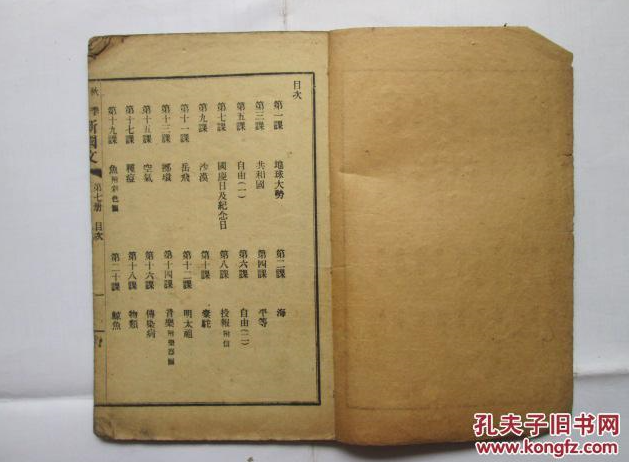 目次
第一課 地球大勢 第二課 海
第三課 共和國 第四課 平等
第五課 自由(一) 第六課 自由(二)
第七課 國慶日及紀念日 第八課 投報附信
第九課 沙漠 第十課 橐駝
第十一課 岳飛 第十二課 明太祖
第十三課 第十四課 音樂附樂器圖
第十五課 空氣 第十六課 傳染病
第十七課 種痘 第十八課 物類
第十九課 魚附彩色圖 第二十課 鯨魚
秋季 新國文 第七册 目次
孔夫子旧书网
KONGFZ.COM